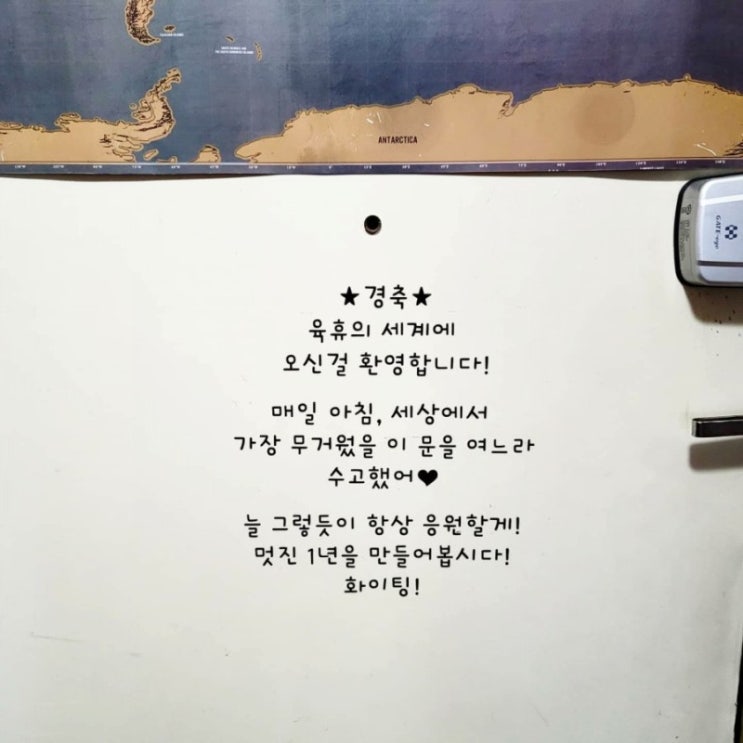 ANTARCTICA
GATE
★경축★
육휴의 세계에
오신걸 환영합니다!
매일 아침, 세상에서
가장 무거웠을 이 문을 여느라
수고했어♥
늘 그렇듯이 항상 응원할게!
멋진 1년을 만들어봅시다!
화이팅!